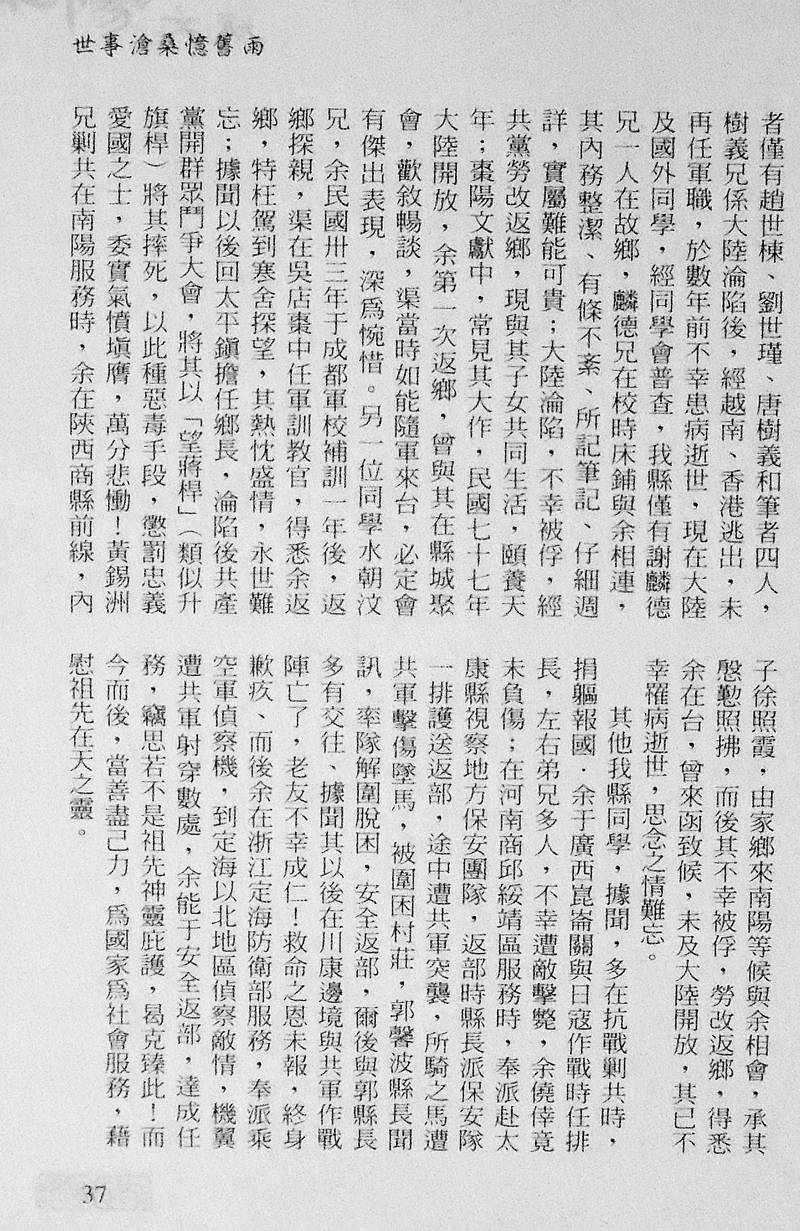 世事滄桑憶舊雨
者僅有趙世棟、劉世瑾、唐樹義和筆者四人，
樹義兄係大陸淪陷後，經越南、香港逃出，未
再任軍職，於數年前不幸患病逝世，現在大陸
及國外同學，經同學會普查，我縣僅有謝麟德
兄一人在故鄉，麟德兄在校時床鋪與余相連，
其內務整潔、有條不紊、所記筆記、仔細週
詳，實屬難能可貴；大陸淪陷，不幸被俘，經
共黨勞改返鄉，現與其子女共同生活，頤養天
年；棗陽文獻中，常見其大作，民國七十七年
大陸開放，余第一次返鄉，曾與其在縣城聚
會，歡敘暢談，渠當時如能隨軍來台，必定會
有傑出表現，深爲惋惜。另一位同學水朝汶
兄，余民國卅三年于成都軍校補訓一年後，返
鄉探親，渠在吳店棗中任軍訓教官，得悉余返
鄉，特枉駕到寒舍探望，其熱忱盛情，永世難
忘；據聞以後回太平鎭擔任鄉長，淪陷後共產
黨開群眾鬥爭大會，將其以「望蔣桿」（類似升
旗桿）將其摔死，以此種惡毒手段，懲罰忠義
愛國之士，委實氣憤塡膺，萬分悲慟！黃錫洲
兄剿共在南陽服務時，余在陝西商縣前線，內
子徐照霞，由家鄉來南陽等候與余相會，承其
慇懃照拂，而後其不幸被俘，勞改返鄉，得悉
余在台，曾來函致候，未及大陸開放，其已不
幸罹病逝世，思念之情難忘。
其他我縣同學，據聞，多在抗戰剿共時，
捐軀報國．余于廣西崑崙關與日寇作戰時任排
長，左右弟兄多人，不幸遭敵擊斃，余僥倖竟
未負傷；在河南商邱綏靖區服務時，奉派赴太
康縣視察地方保安團隊，返部時縣長派保安隊
一排護送返部，途中遭共軍突襲，所騎之馬遭
共軍擊傷墜馬，被圍困村莊，郭馨波縣長聞
訊，率隊解圍脫困，安全返部，爾後與郭縣長
多有交往、據聞其以後在川康邊境與共軍作戰
陣亡了，老友不幸成仁！救命之恩未報，終身
歉疚、而後余在浙江定海防衛部服務，奉派乘
空軍偵察機，到定海以北地區偵察敵情，機翼
遭共軍射穿數處，余能于安全返部，達成任
務，竊思若不是祖先神靈庇護，曷克臻此！而
今而後，當善盡己力，爲國家爲社會服務，藉
慰祖先在天之靈。
37